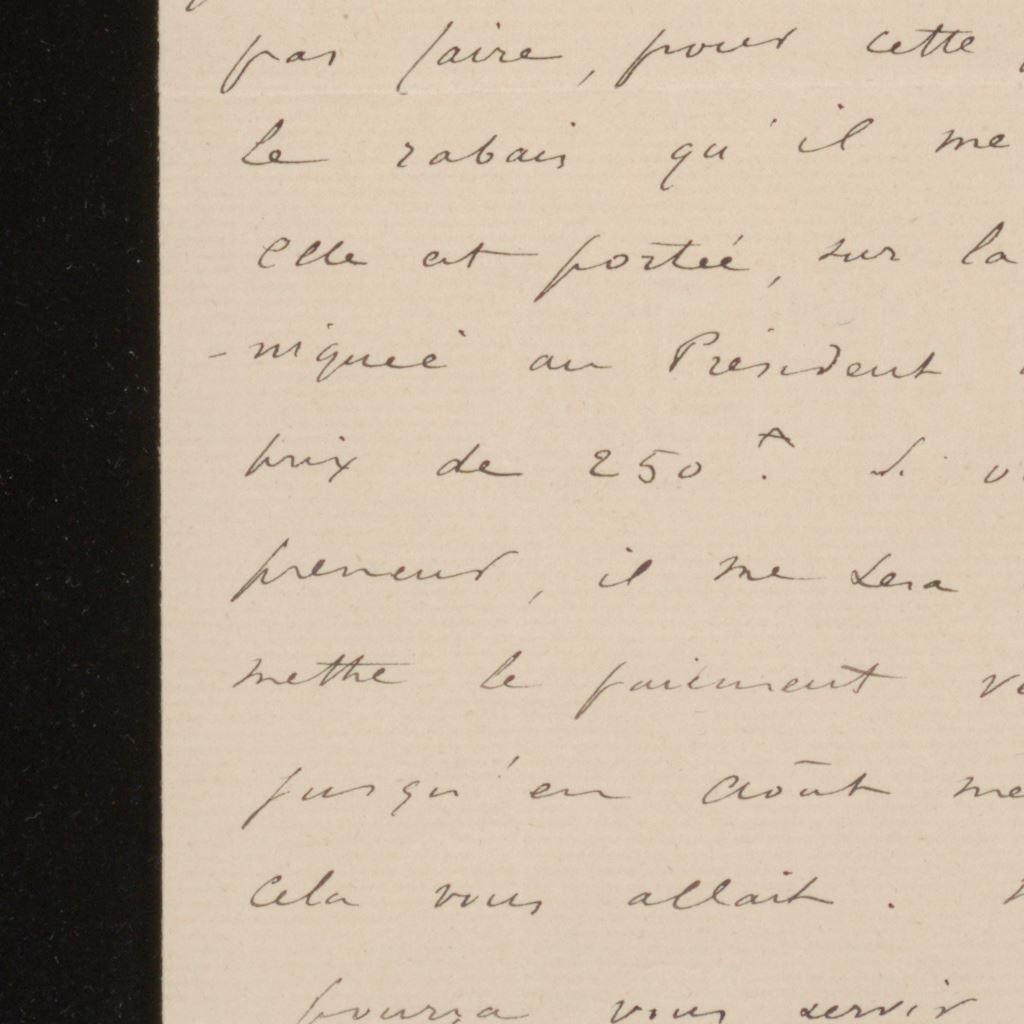 pas faire, pour cette
le rabais qu'il me
elle est portée, sur la
-niquée au Président
prix de 250 f. Si
preneur, il me sera
mettre le paiement
jusqu'en août me
cela vous allait.
pourra vous servir